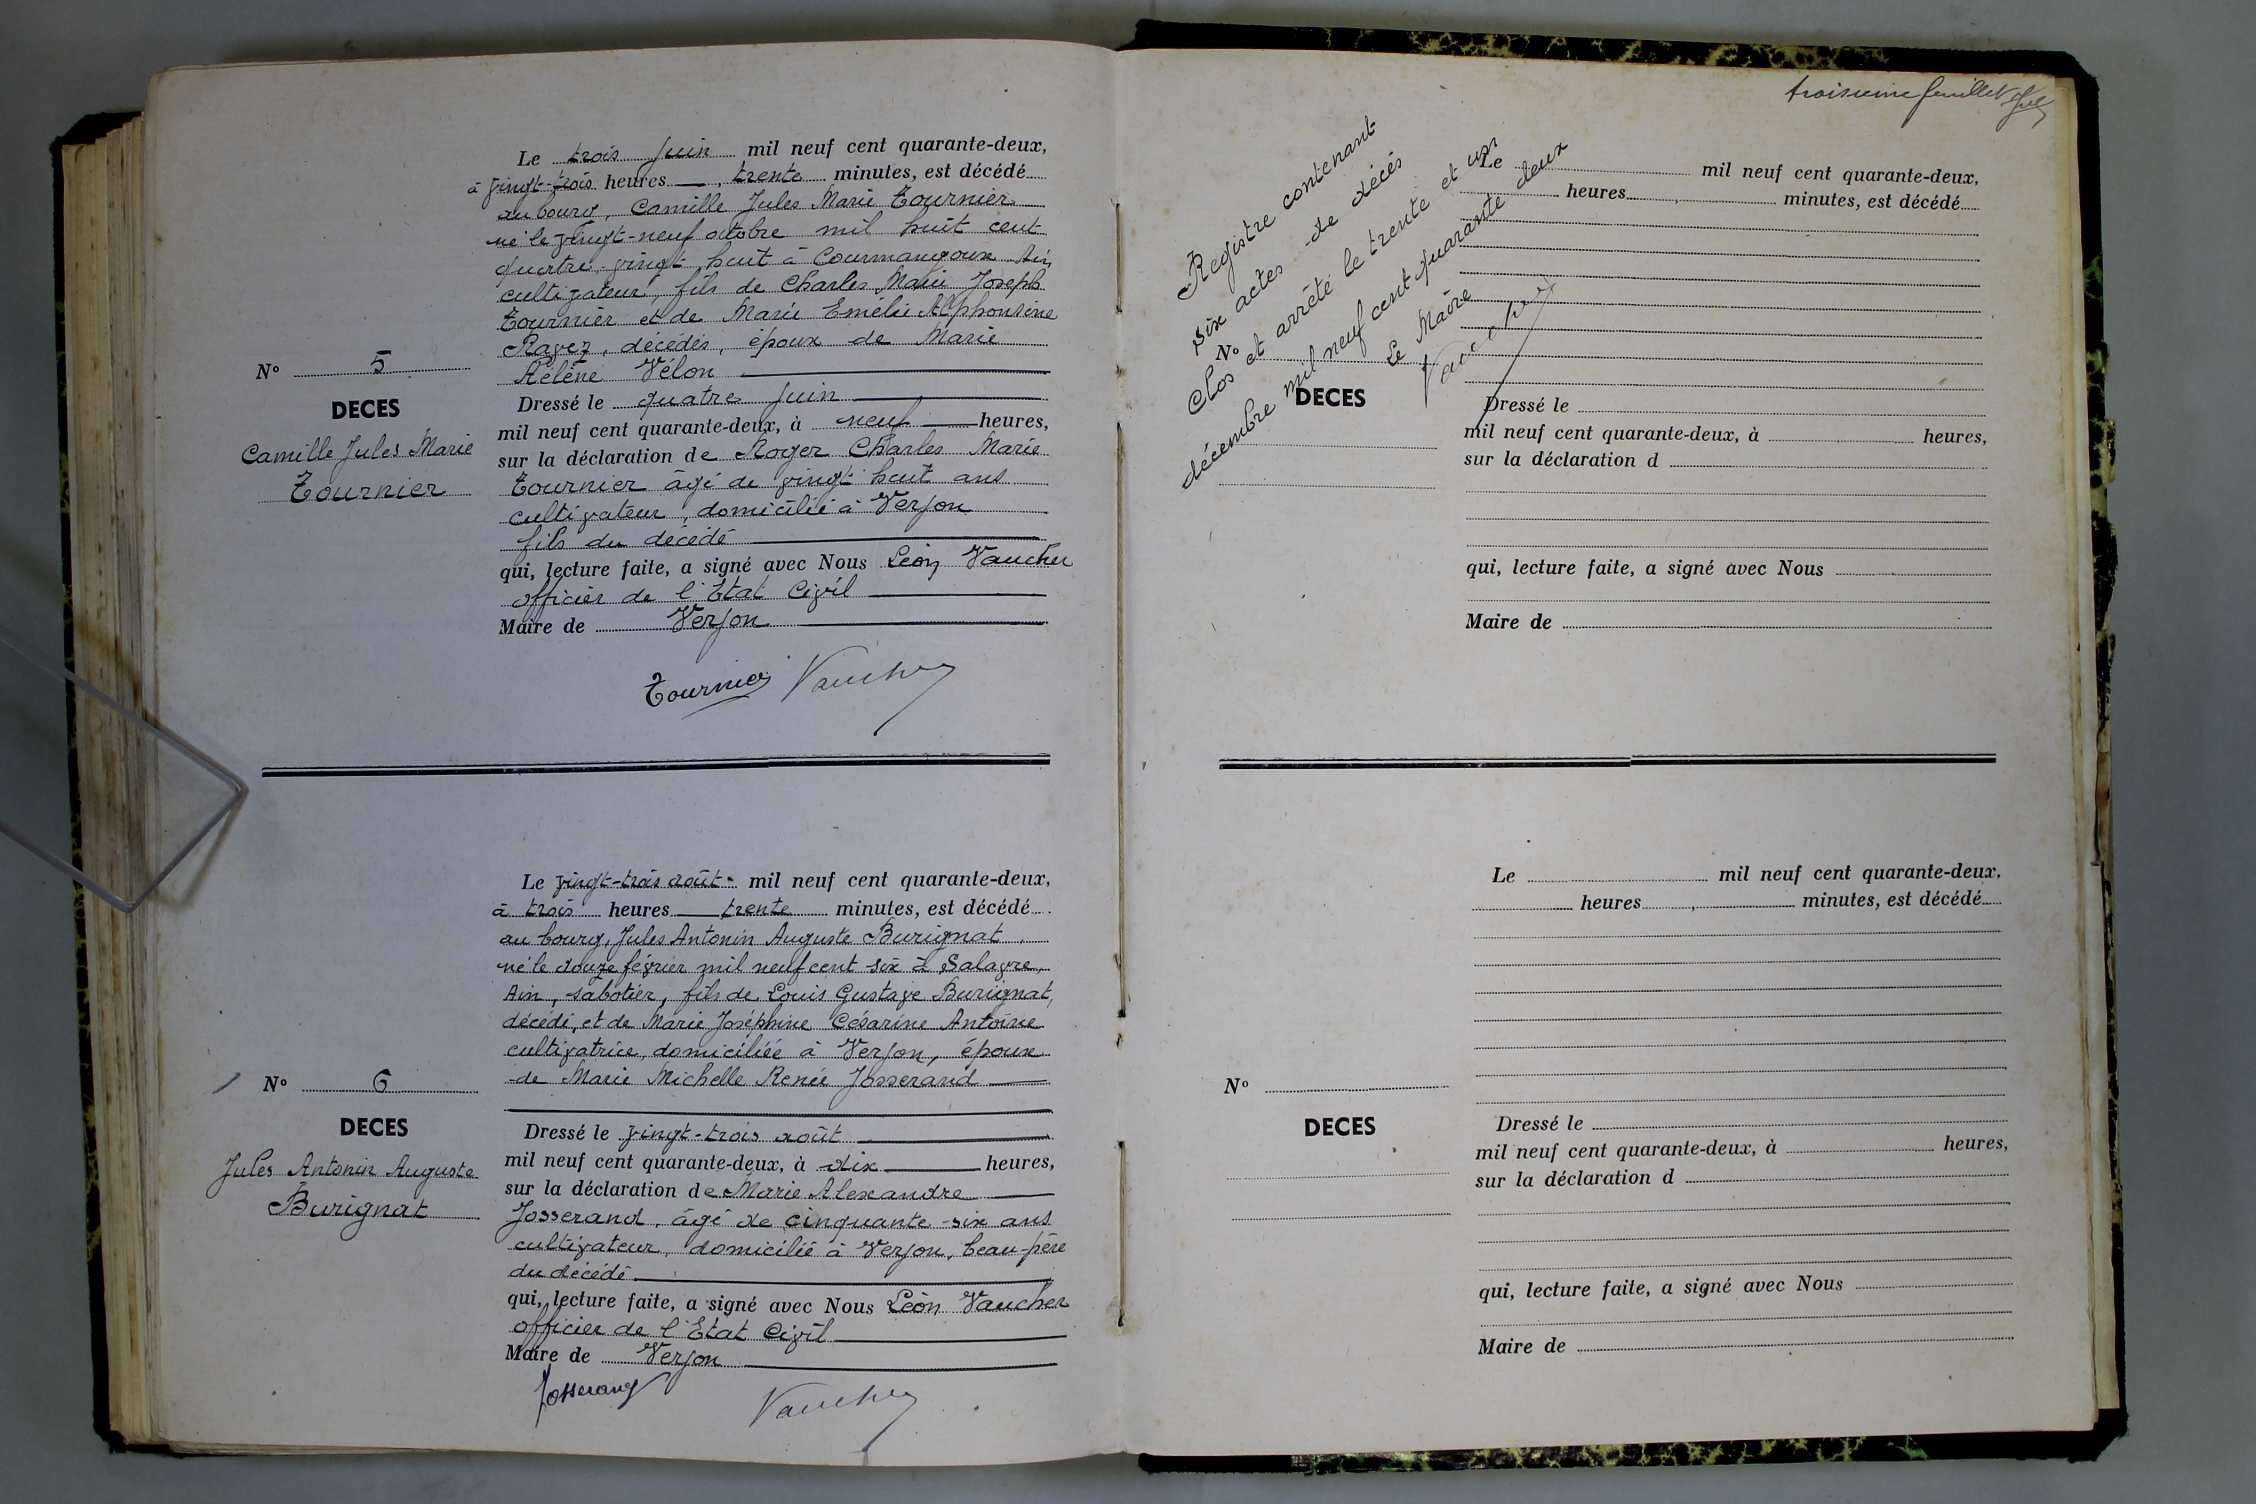 Le trois juin mil neuf cent quarante-deux,
à vingt-trois heures, trente minutes, est décédé
au bourg, Camille Jules Marie Tournier
né le vingt-neuf octobre mil huit cent
quatre-vingt huit à Courmangoux Ain,
cultivateur, fils de Charles Marie Joseph
Tournier et de Marie Emélie Alphonsine
Ravez, décédés, époux de Marie
Hélène Vélon
Dressé le quatre juin
mil neuf cent quarante-deux, à neuf heures,
sur la déclaration de Roger Charles Marie
Tournier âgé de vingt huit ans
cultivateur, domicilié à Verjon
fils du décédé
qui, lecture faite, a signé avec Nous Léon Vaucher
officier de l'Etat Civil
Maire de Verjon
Tournier Vaucher
N° 5
DECES
Camille Jules Marie
Tournier
Le vingt-trois août mil neuf cent quarante-deux,
à trois heures trente minutes, est décédé
au bourg, Jules Antonin Auguste Burignat,
né le douze février mil neuf cent six à Salavre,
Ain, sabotier, fils de Louis Gustave Burignat,
décédé, et de Marie Joséphine Césarine Antoine
cultivatrice, domiciliée à Verjon, époux
de Marie Michelle Renée Josserand
Dressé le vingt-trois août
mil neuf cent quarante-deux, à dix heures,
sur la déclaration de Marie Alexandre
Josserand, âgé de cinquante-six ans
cultivateur, domicilié à Verjon, beau-père
du décédé
qui, lecture faite, a signé avec Nous Léon Vaucher
officier de l'Etat Civil
Maire de Verjon
Josserand Vaucher
N° 6
DECES
Jules Antonin Auguste
Burignat
troisième feuillet
Registre contenant
six actes de décès
Clos et arrêté le trente et un
décembre mil neuf cent quarante deux
Le Maire
Vaucher
Le mil neuf cent quarante-deux,
heures, minutes, est décédé
N°
DECES
Dressé le
mil neuf cent quarante-deux, à heures,
sur la déclaration d
qui, lecture faite, a signé avec Nous
Maire de
Le mil neuf cent quarante-deux,
heures, minutes, est décédé
N°
DECES
Dressé le
mil neuf cent quarante-deux, à heures,
sur la déclaration d
qui, lecture faite, a signé avec Nous
Maire de